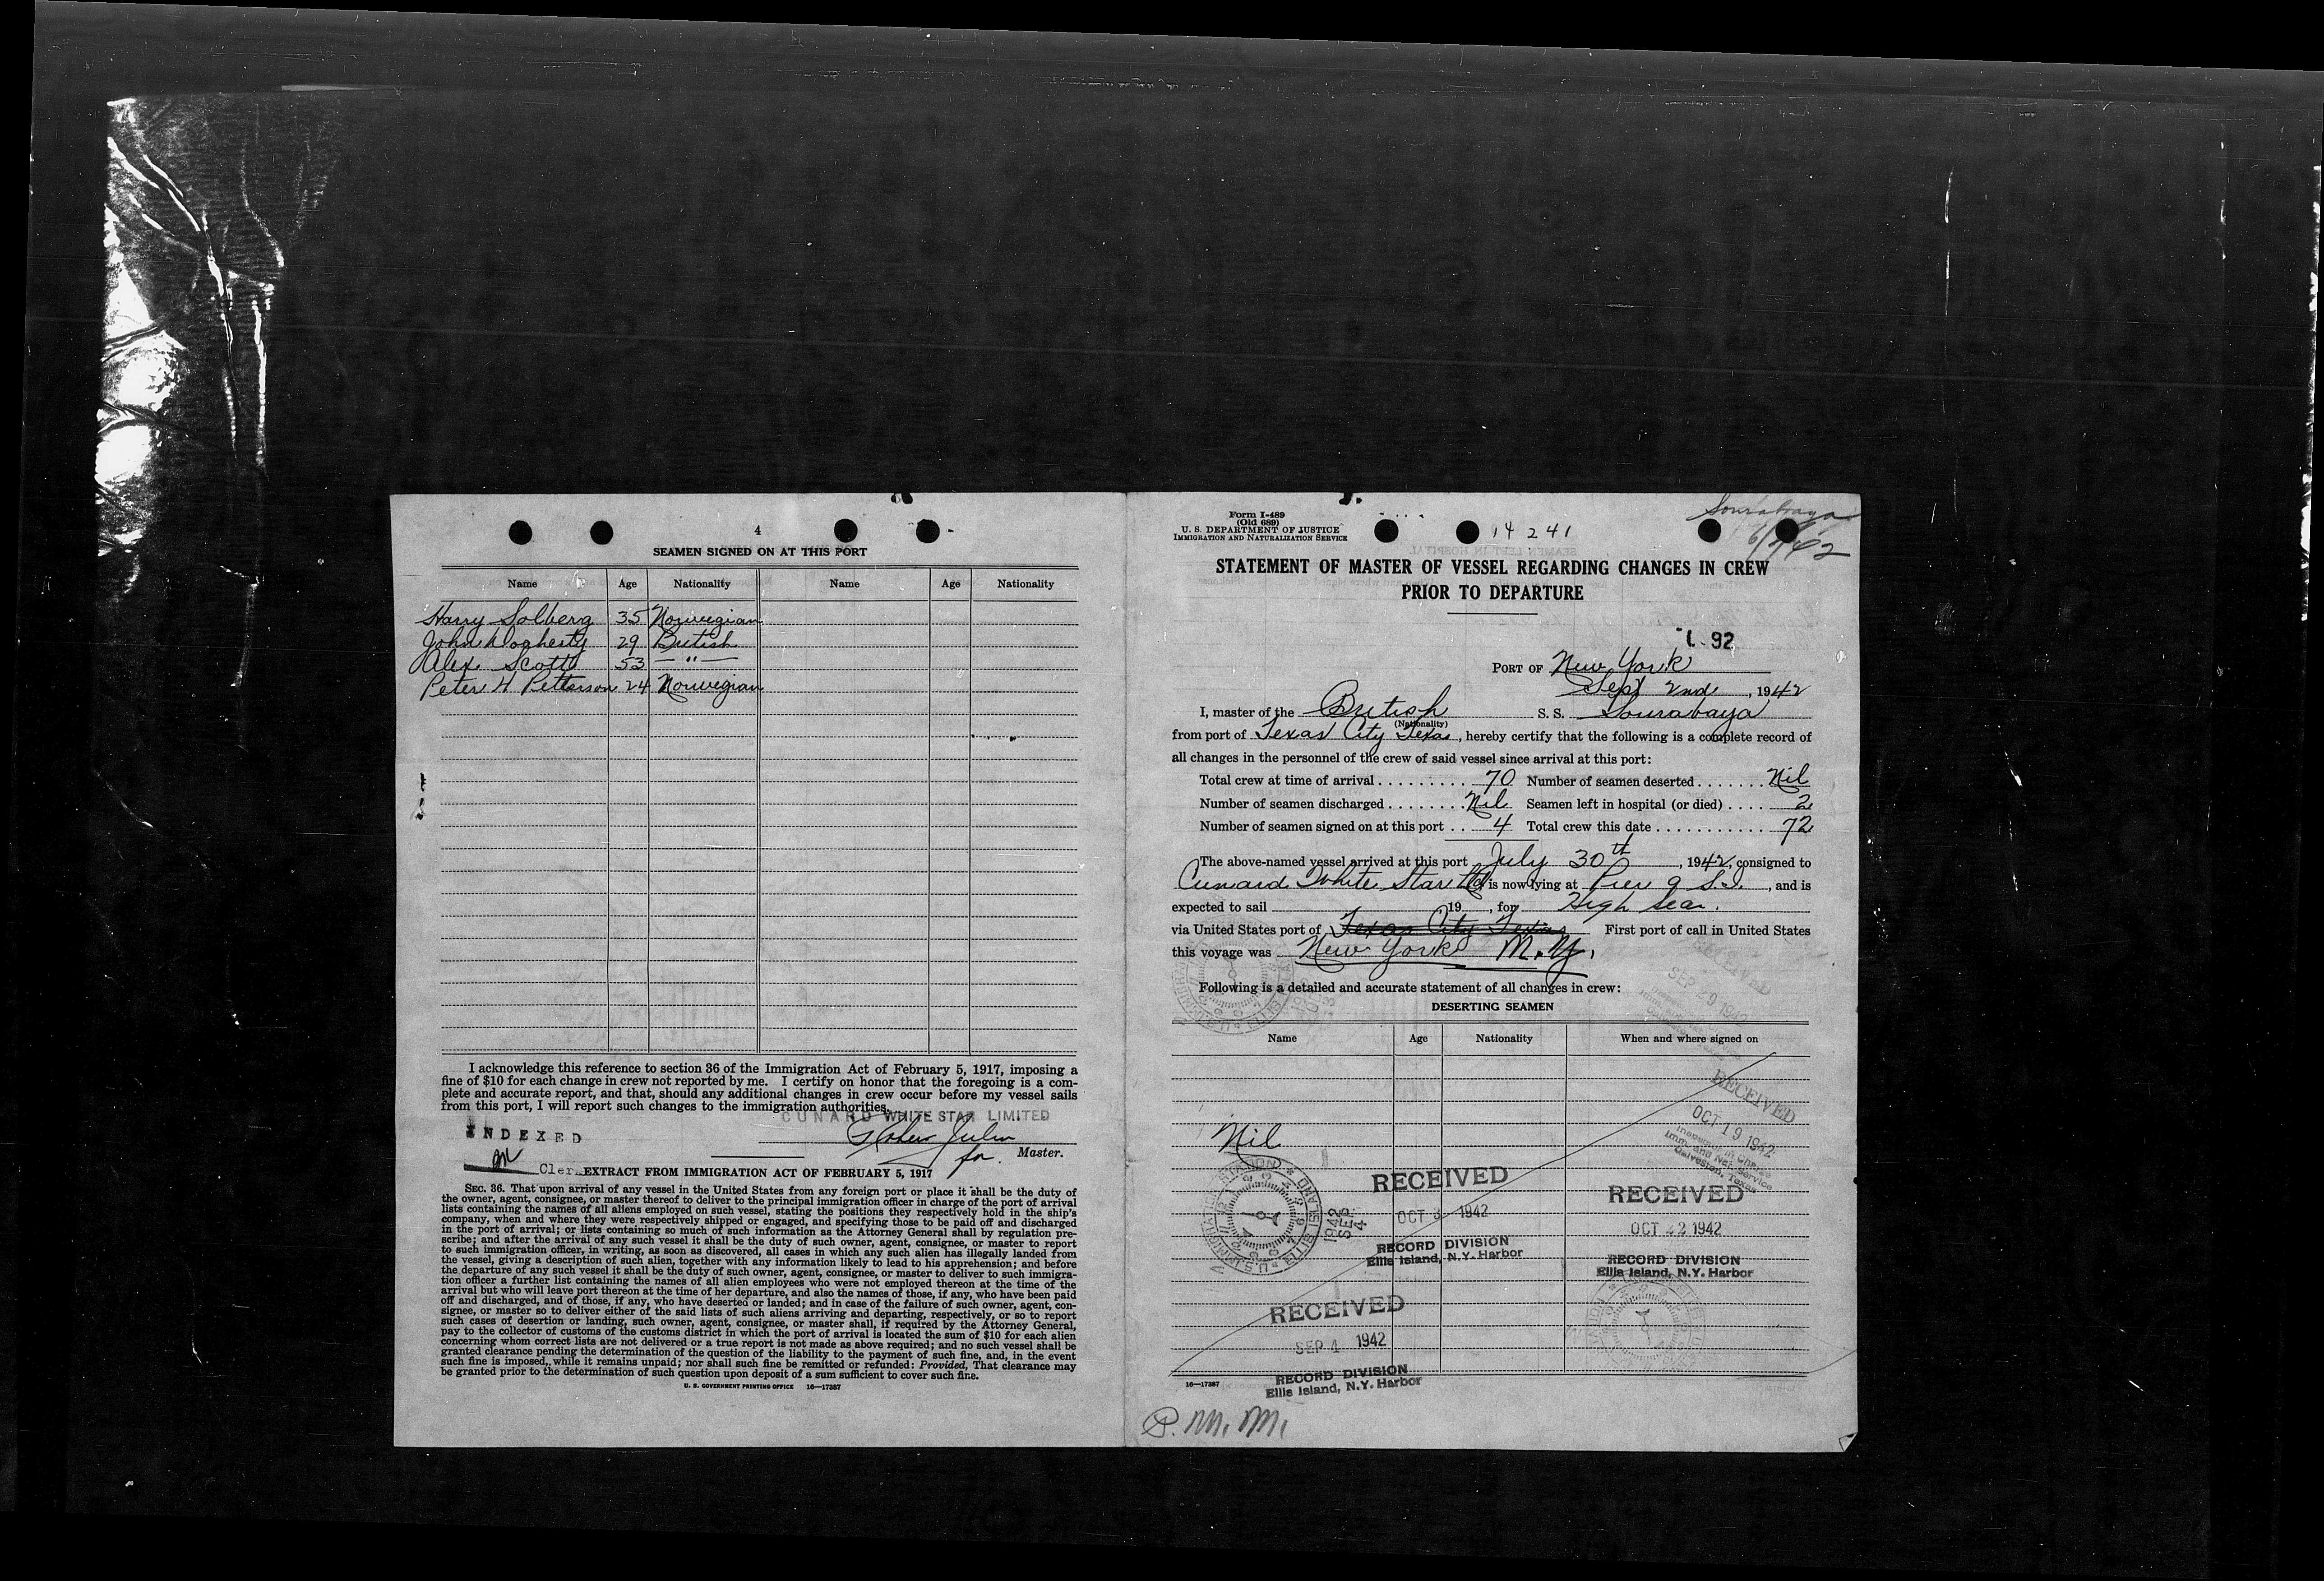 4
SEAMEN SIGNED ON AT THIS PORT
Name Age Nationality Name Age Nationality
Harry Solberg 35 Norwegian
John Dogherty 29 British
Alex Scott 53 — " —
Peter H Petterson 24 Norwegian
I acknowledge this reference to section 36 of the Immigration Act of February 5, 1917, imposing a
fine of $10 for each change in crew not reported by me. I certify on honor that the foregoing is a com-
plete and accurate report, and that, should any additional changes in crew occur before my vessel sails
from this port, I will report such changes to the immigration authorities.
CUNARD WHITE STAR LIMITED
INDEXED
for Master.
Clerk
EXTRACT FROM IMMIGRATION ACT OF FEBRUARY 5, 1917
SEC. 36. That upon arrival of any vessel in the United States from any foreign port or place it shall be the duty of
the owner, agent, consignee, or master thereof to deliver to the principal immigration officer in charge of the port of arrival
lists containing the names of all aliens employed on such vessel, stating the positions they respectively hold in the ship's
company, when and where they were respectively shipped or engaged, and specifying those to be paid off and discharged
in the port of arrival; or lists containing so much of such information as the Attorney General shall by regulation pre-
scribe; and after the arrival of any such vessel it shall be the duty of such owner, agent, consignee, or master to report
to such immigration officer, in writing, as soon as discovered, all cases in which any such alien has illegally landed from
the vessel, giving a description of such alien, together with any information likely to lead to his apprehension; and before
the departure of any such vessel it shall be the duty of such owner, agent, consignee, or master to deliver to such immigra-
tion officer a further list containing the names of all alien employees who were not employed thereon at the time of the
arrival but who will leave port thereon at the time of her departure, and also the names of those, if any, who have been paid
off and discharged, and of those, if any, who have deserted or landed; and in case of the failure of such owner, agent, con-
signee, or master so to deliver either of the said lists of such aliens arriving and departing, respectively, or so to report
such cases of desertion or landing, such owner, agent, consignee, or master shall, if required by the Attorney General,
pay to the collector of customs of the customs district in which the port of arrival is located the sum of $10 for each alien
concerning whom correct lists are not delivered or a true report is not made as above required; and no such vessel shall be
granted clearance pending the determination of the question of the liability to the payment of such fine, and, in the event
such fine is imposed, while it remains unpaid; nor shall such fine be remitted or refunded: Provided, That clearance may
be granted prior to the determination of such question upon deposit of a sum sufficient to cover such fine.
U. S. GOVERNMENT PRINTING OFFICE 16—17387
Form I-489
(Old 689)
U. S. DEPARTMENT OF JUSTICE
IMMIGRATION AND NATURALIZATION SERVICE
14241
Sourabaya
STATEMENT OF MASTER OF VESSEL REGARDING CHANGES IN CREW
PRIOR TO DEPARTURE
92
PORT OF New York
Sept 2nd, 1942
I, master of the British S. S. Sourabaya
(Nationality)
from port of Texas City Texas, hereby certify that the following is a complete record of
all changes in the personnel of the crew of said vessel since arrival at this port:
Total crew at time of arrival 70 Number of seamen deserted Nil
Number of seamen discharged Nil Seamen left in hospital (or died) 2
Number of seamen signed on at this port 4 Total crew this date 72
The above-named vessel arrived at this port July 30th, 1942, consigned to
Cunard White Star Ltd is now lying at Pier 9 S.I., and is
expected to sail 19 , for High Seas.
via United States port of Texas City Texas First port of call in United States
this voyage was New York N.Y.
Following is a detailed and accurate statement of all changes in crew:
DESERTING SEAMEN
Name Age Nationality When and where signed on
Nil
RECEIVED
SEP 29 1942
RECEIVED
OCT 19 1942
Inspector in Charge
Imm. and Nat. Service
Galveston, Texas
U.S. IMMIGRATION STATION ELLIS ISLAND
1942 SEP 4
RECEIVED
OCT 3 1942
RECORD DIVISION
Ellis Island, N.Y. Harbor
RECEIVED
OCT 22 1942
RECORD DIVISION
Ellis Island, N.Y. Harbor
RECEIVED
SEP 4 1942
RECORD DIVISION
Ellis Island, N.Y. Harbor
16—17387